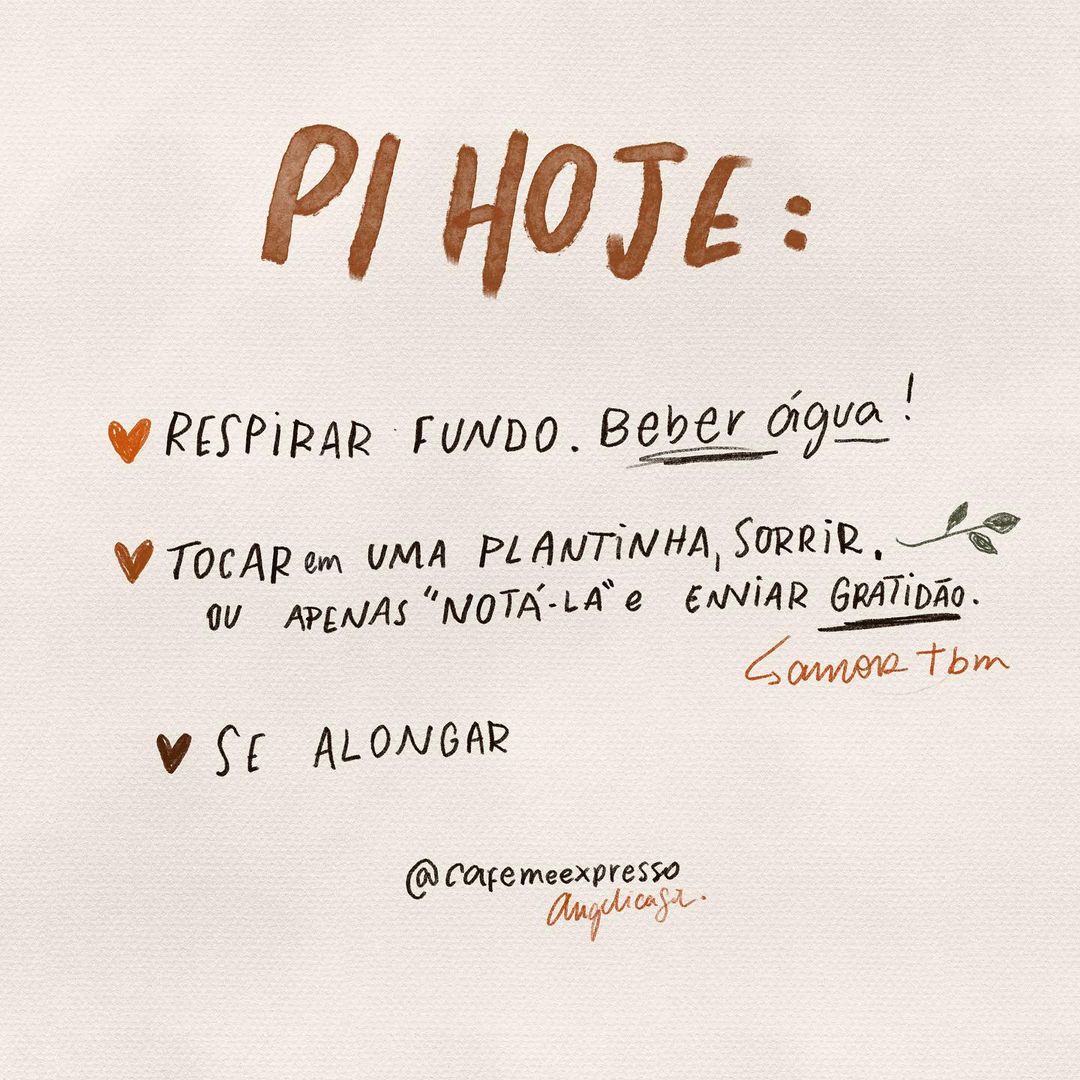 PI HOJE:
RESPIRAR FUNDO. Beber água!
TOCAR em UMA PLANTINHA, SORRIR.
OU APENAS "NOTÁ-LA" e ENVIAR GRATIDÃO.
amor tbm
SE ALONGAR
@cafemeexpresso